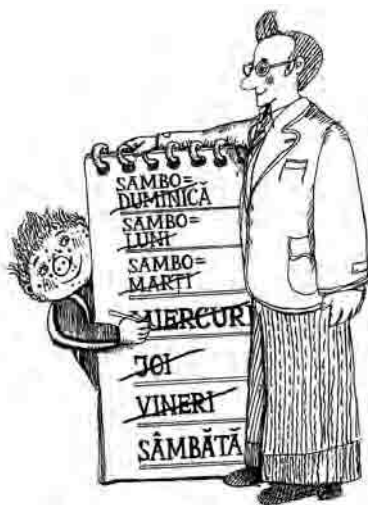 SAMBO=
DUMINICĂ
SAMBO=
LUNI
SAMBO=
MARȚI
MIERCURI
JOI
VINERI
SÂMBĂTĂ